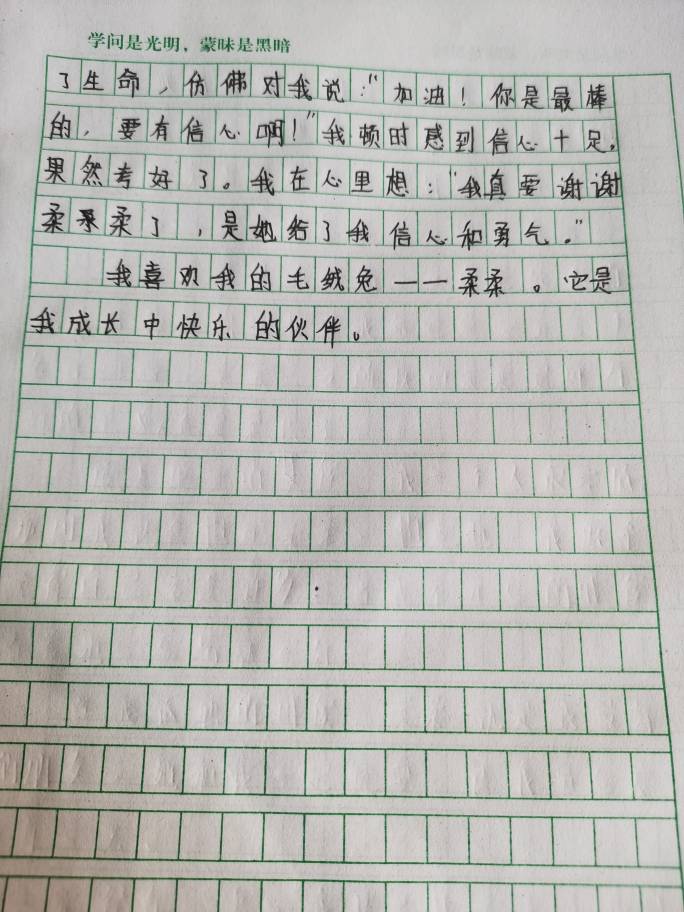 学问是光明，蒙昧是黑暗
了生命，仿佛对我说："加油！你是最棒
的，要有信心啊！"我顿时感到信心十足，
果然考好了。我在心里想："我真要谢谢
柔柔了，是她给了我信心和勇气。"
我喜欢我的毛绒兔——柔柔。它是
我成长中快乐的伙伴。